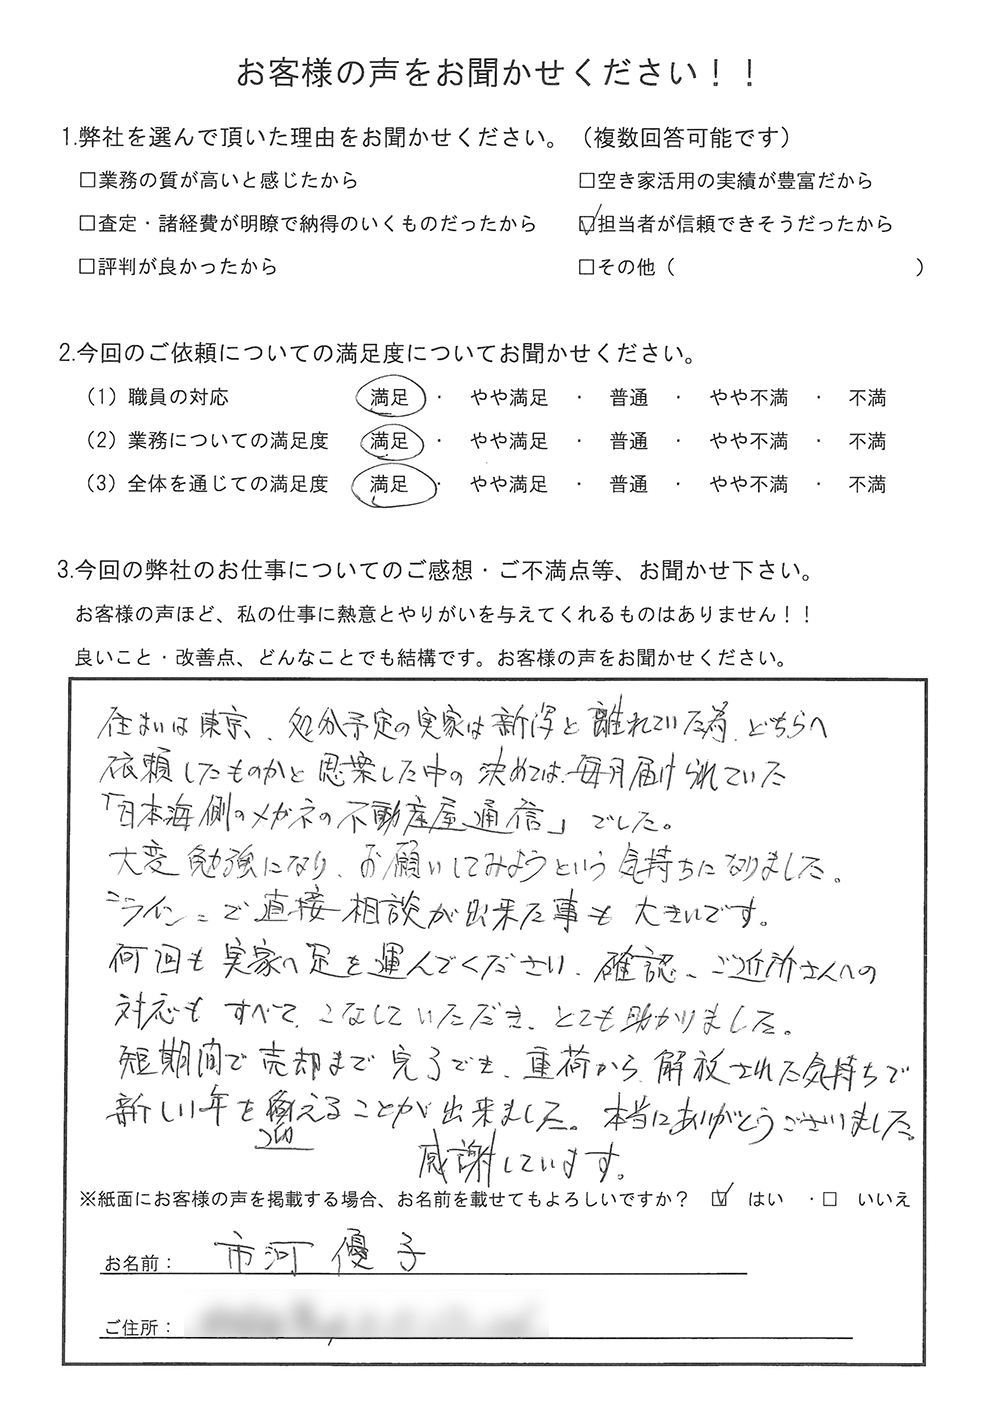 お客様の声をお聞かせください！！
1.弊社を選んで頂いた理由をお聞かせください。（複数回答可能です）
□業務の質が高いと感じたから　□空き家活用の実績が豊富だから
□査定・諸経費が明瞭で納得のいくものだったから　☑担当者が信頼できそうだったから
□評判が良かったから　□その他（　　　）
2.今回のご依頼についての満足度についてお聞かせください。
（1）職員の対応　満足 ・ やや満足 ・ 普通 ・ やや不満 ・ 不満
（2）業務についての満足度　満足 ・ やや満足 ・ 普通 ・ やや不満 ・ 不満
（3）全体を通じての満足度　満足 ・ やや満足 ・ 普通 ・ やや不満 ・ 不満
3.今回の弊社のお仕事についてのご感想・ご不満点等、お聞かせ下さい。
お客様の声ほど、私の仕事に熱意とやりがいを与えてくれるものはありません！！
良いこと・改善点、どんなことでも結構です。お客様の声をお聞かせください。
住まいは東京、処分予定の実家は新潟と離れていた為、どちらへ
依頼したものかと思案した中の決めては、毎月届けられていた
「日本海側のメガネの不動産屋通信」でした。
大変勉強になり、お願いしてみようという気持ちになりました。
"ライン"で直接相談が出来た事も大きいです。
何回も実家へ足を運んでください、確認、ご近所さんへの
対応もすべて、こなしていただき、とても助かりました。
短期間で売却まで完了でき、重荷から解放された気持ちで
新しい年を迎えることが出来ました。本当にありがとうございました。
感謝しています。
※紙面にお客様の声を掲載する場合、お名前を載せてもよろしいですか？　☑ はい　・□ いいえ
お名前：市河 優子
ご住所：